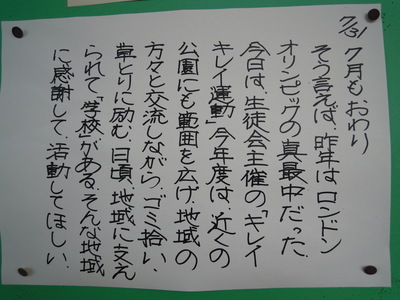 7/31
7月もおわり
そう言えば、昨年はロンドン
オリンピックの真最中だった。
今日は、生徒会主催の「キレイ
キレイ運動」今年度は、近くの
公園にも範囲を広げ、地域の
方々と交流しながら、ゴミ拾い、
草とりに励む。日頃、地域に支え
られて「学校」がある。そんな地域
に感謝して、活動してほしい。